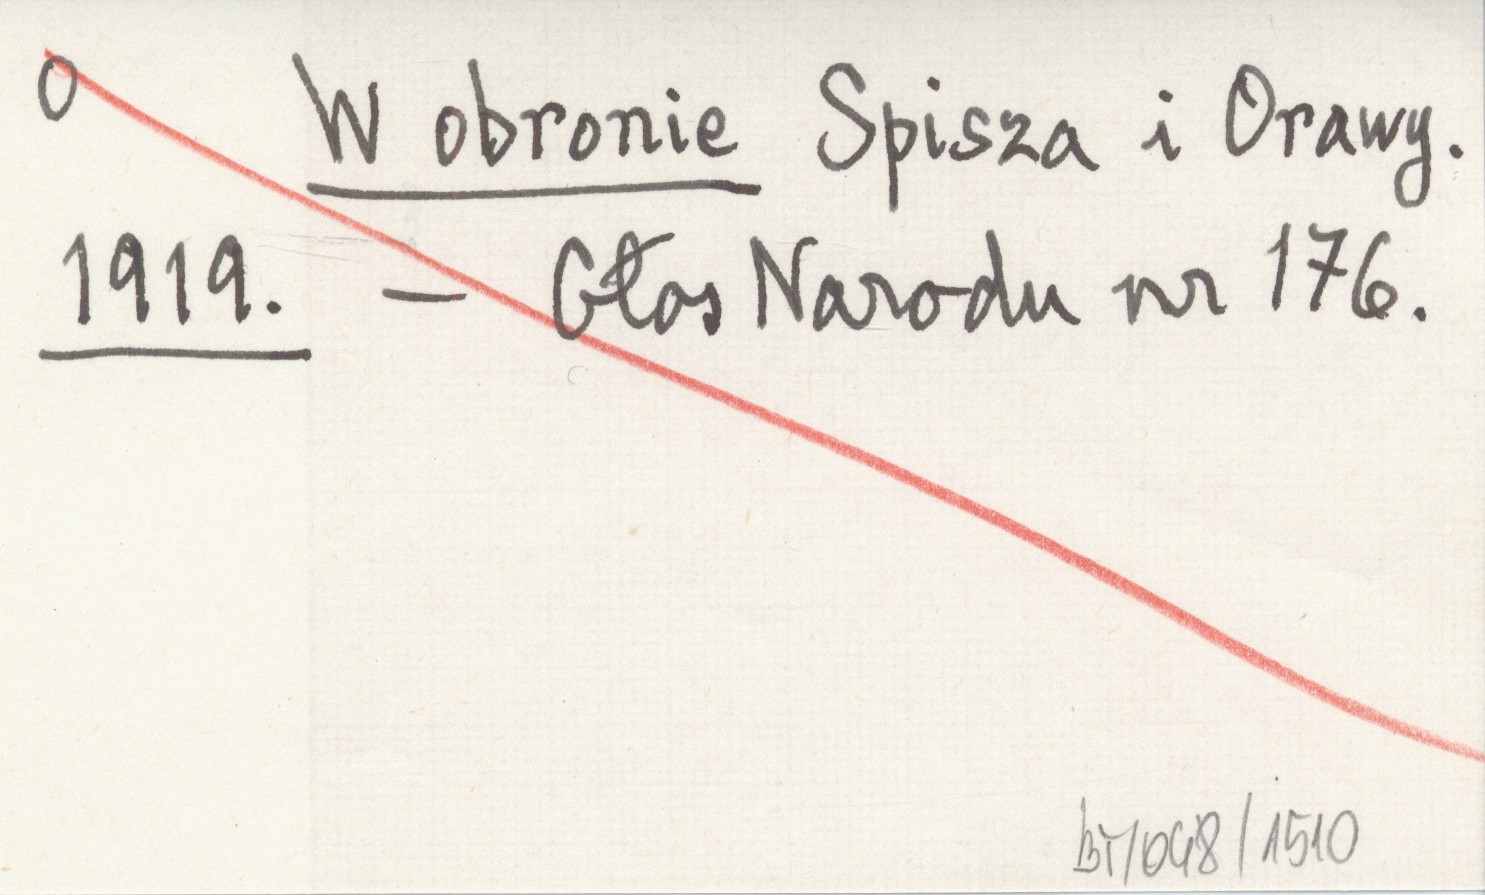 O W obronie Spisza i Orawy.
1919. – Głos Narodu nr 176.
BT/048/1510